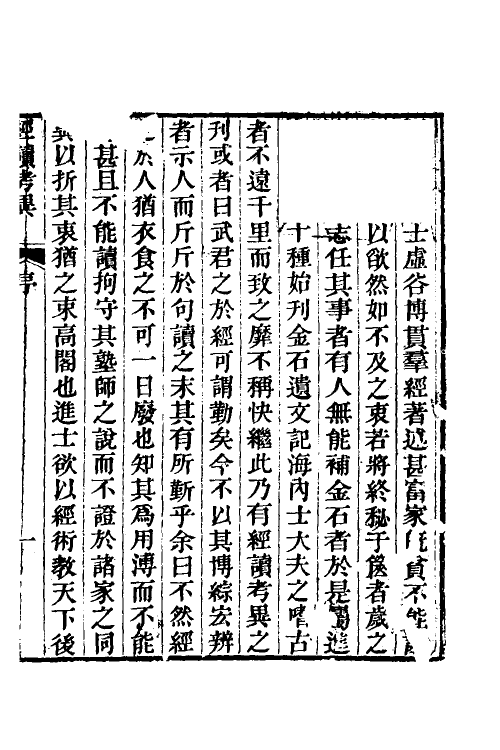 士虛谷博貫羣經著述甚富家貧不能
以欿然如不及之衷若將終秘于篋者歲之
志任其事者有人無能補金石者於是進
十種始刊金石遺文記海內士大夫之嗜古
者不遠千里而致之靡不稱快繼此乃有經讀考異之
刊或者曰武君之於經可謂勤矣今不以其博綜宏辨
者示人而斤斤於句讀之末其有所靳乎余曰不然經
之於人猶衣食之不可一日廢也知其為用溥而不能
甚且不能讀拘守其塾師之說而不證於諸家之同
異以折其衷猶之束高閣也進士欲以經術教天下後
經讀考異 序 一